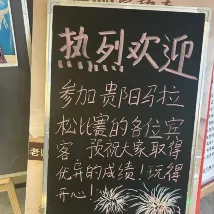 热烈欢迎
参加贵阳马拉
松比赛的各位宾
客 预祝大家取得
优异的成绩！玩得
开心！